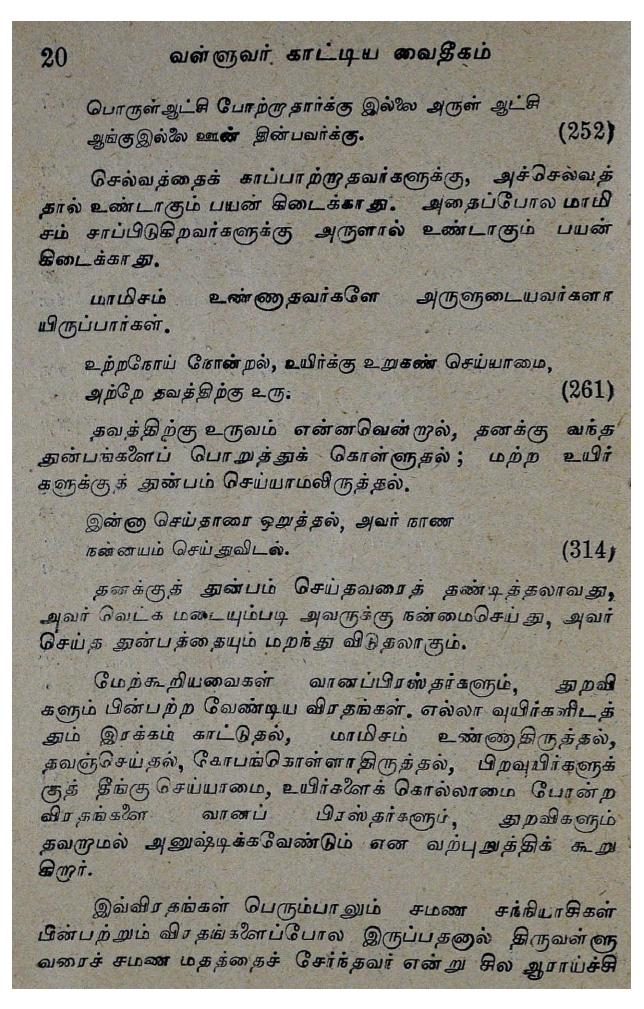 20 வள்ளுவர் காட்டிய வைதீகம்
பொருள்ஆட்சி போற்றாதார்க்கு இல்லை அருள் ஆட்சி
ஆங்குஇல்லை ஊன் தின்பவர்க்கு. (252)
செல்வத்தைக் காப்பாற்றாதவர்களுக்கு, அச்செல்வத்
தால் உண்டாகும் பயன் கிடைக்காது. அதைப்போல மாமி
சம் சாப்பிடுகிறவர்களுக்கு அருளால் உண்டாகும் பயன்
கிடைக்காது.
மாமிசம் உண்ணாதவர்களே அருளுடையவர்களா
யிருப்பார்கள்.
உற்றநோய் நோன்றல், உயிர்க்கு உறுகண் செய்யாமை,
அற்றே தவத்திற்கு உரு. (261)
தவத்திற்கு உருவம் என்னவென்றால், தனக்கு வந்த
துன்பங்களைப் பொறுத்துக் கொள்ளுதல் ; மற்ற உயிர்
களுக்குத் துன்பம் செய்யாமலிருத்தல்.
இன்னா செய்தாரை ஒறுத்தல், அவர் நாண
நன்னயம் செய்துவிடல். (314)
தனக்குத் துன்பம் செய்தவரைத் தண்டித்தலாவது,
அவர் வெட்க மடையும்படி அவருக்கு நன்மைசெய்து, அவர்
செய்த துன்பத்தையும் மறந்து விடுதலாகும்.
மேற்கூறியவைகள் வானப்பிரஸ்தர்களும், துறவி
களும் பின்பற்ற வேண்டிய விரதங்கள். எல்லா வுயிர்களிடத்
தும் இரக்கம் காட்டுதல், மாமிசம் உண்ணாதிருத்தல்,
தவஞ்செய்தல், கோபங்கொள்ளாதிருத்தல், பிறவுயிர்களுக்
குத் தீங்கு செய்யாமை, உயிர்களைக் கொல்லாமை போன்ற
விரதங்களை வானப் பிரஸ்தர்களும், துறவிகளும்
தவறாமல் அனுஷ்டிக்கவேண்டும் என வற்புறுத்திக் கூறு
கிறார்.
இவ்விரதங்கள் பெரும்பாலும் சமண சந்நியாசிகள்
பின்பற்றும் விரதங்களைப்போல இருப்பதனால் திருவள்ளு
வரைச் சமண மதத்தைச் சேர்ந்தவர் என்று சில ஆராய்ச்சி